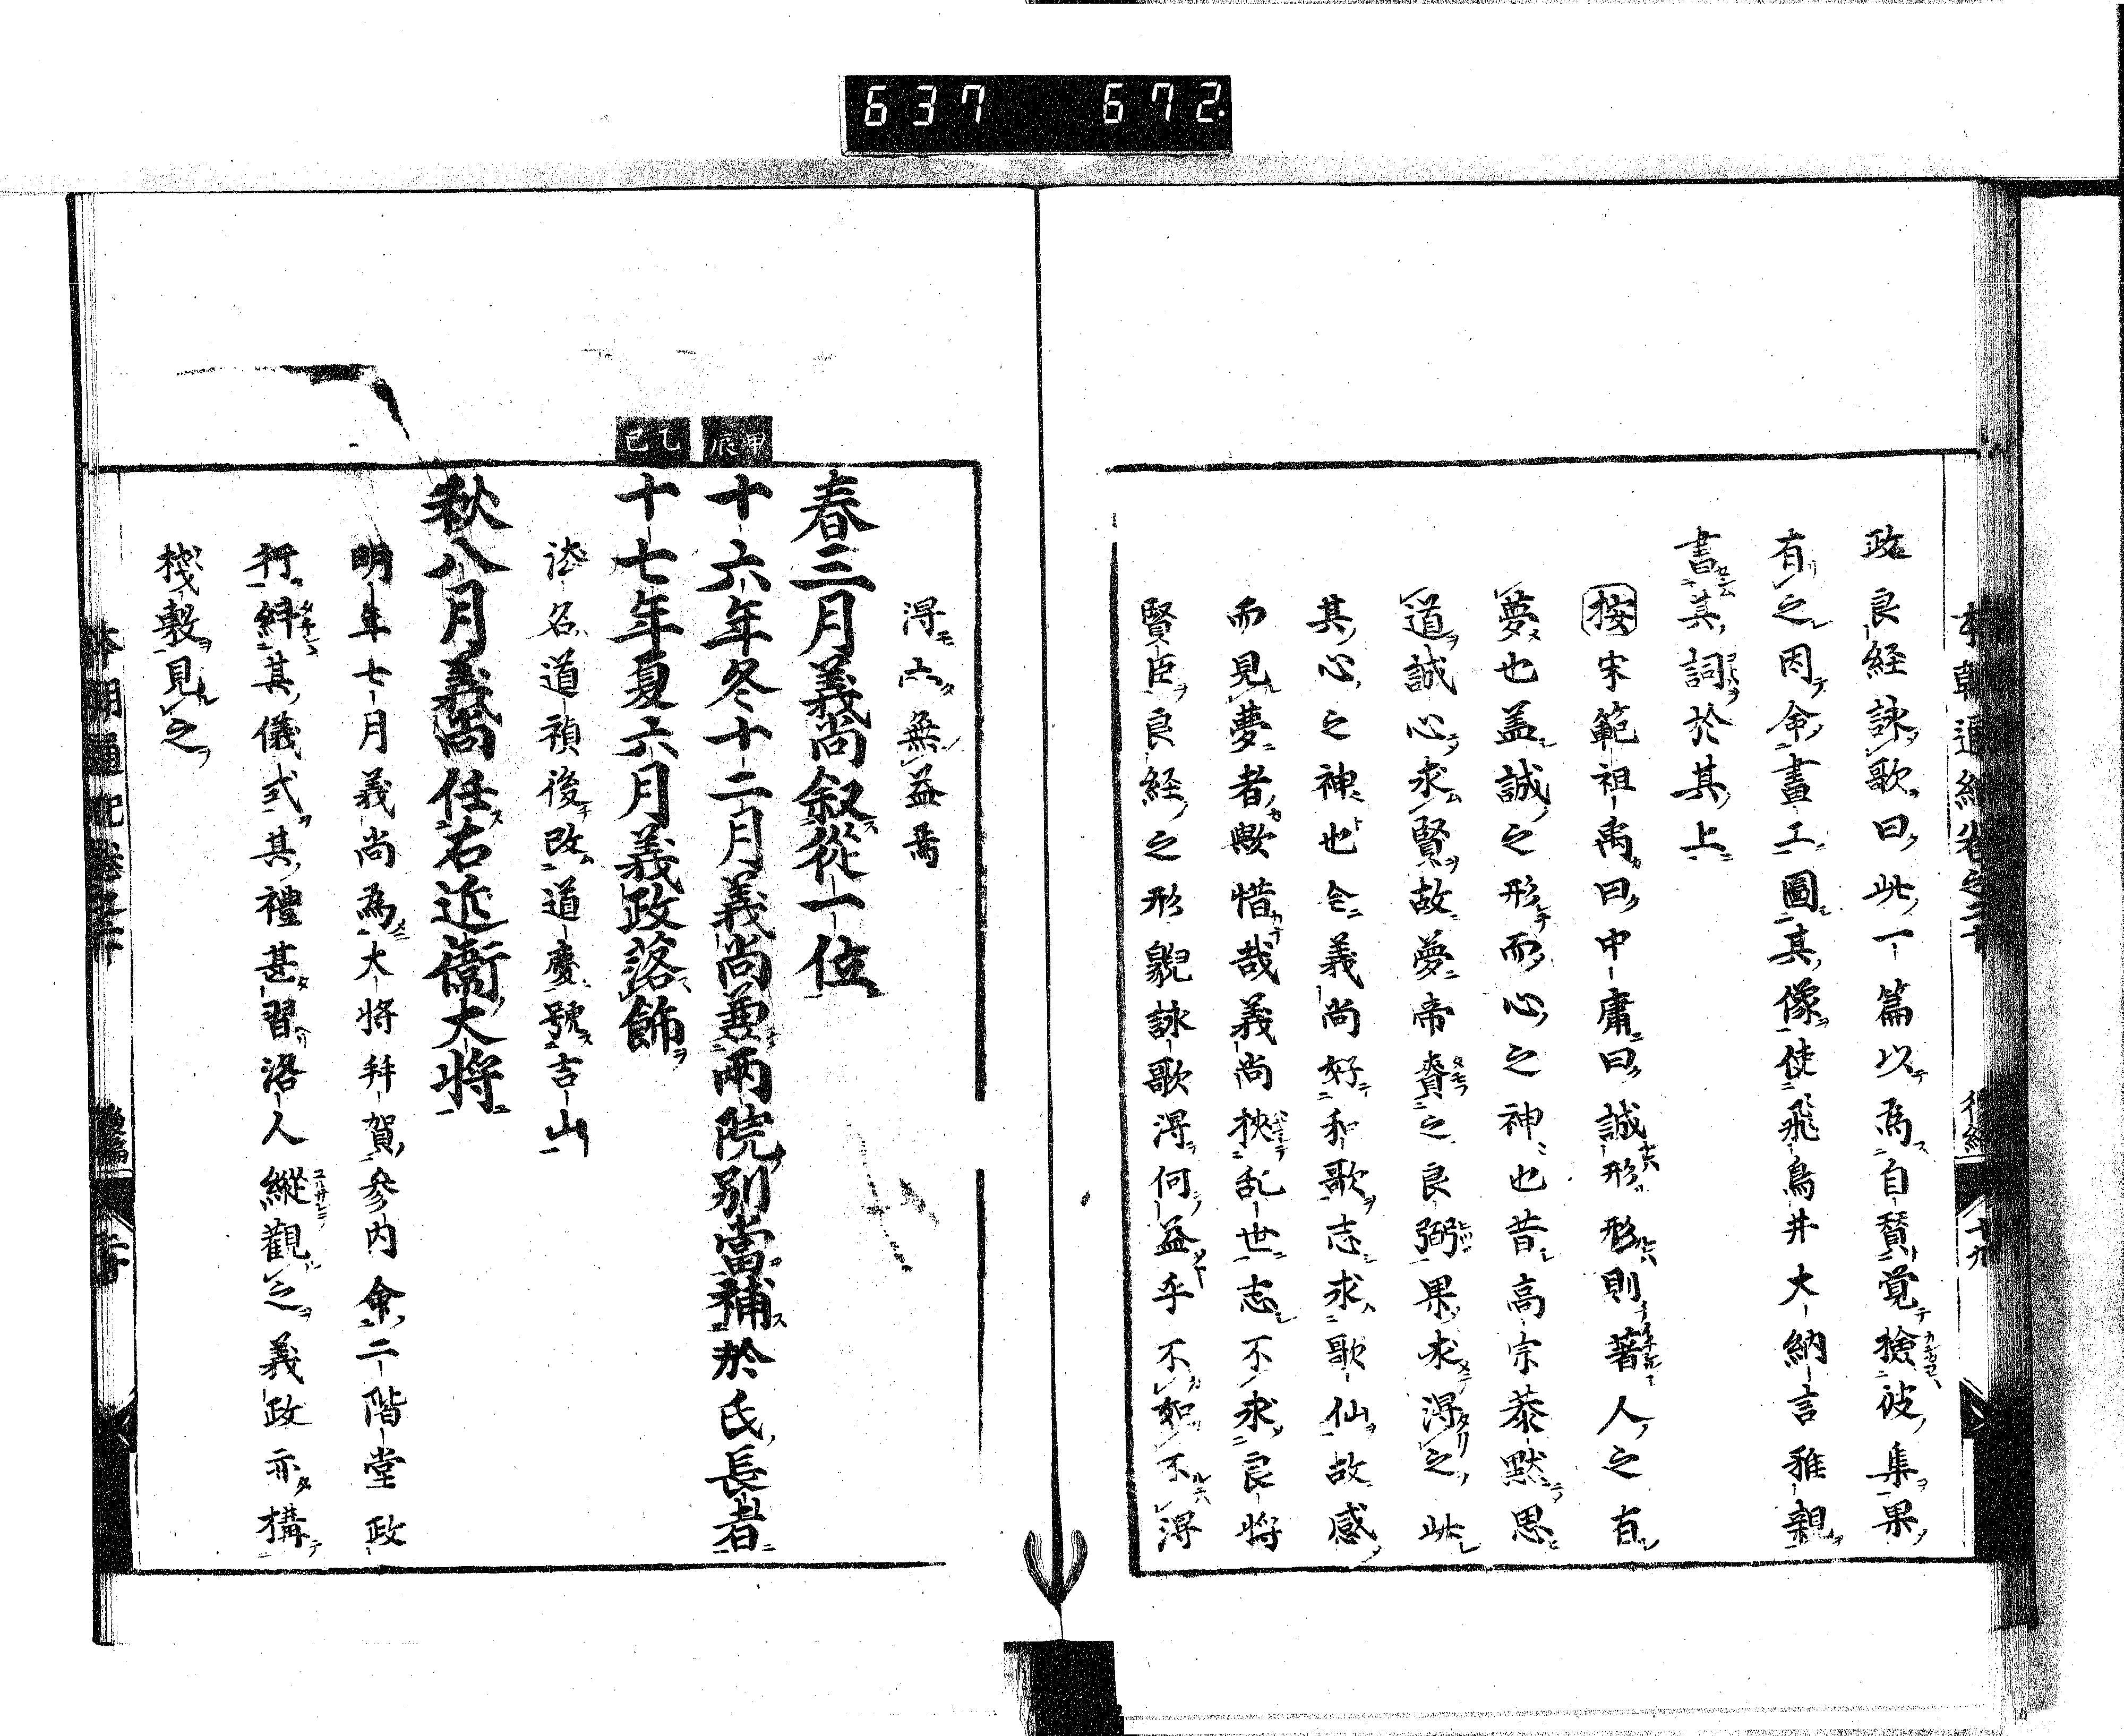 637 672
本朝通紀卷之二十 後編 十九
政良経詠歌曰此一篇以為自賛覚撿彼集果
有之因命畫工圖其像使飛鳥井大納言雅親
書其詞於其上
按宋範祖禹曰中庸曰誠形形則著人之有
夢也盖誠之形而心之神也昔高宗恭默思
道誠心求賢故夢帝賚之良弼果求淂之此
其心之神也今義尚好和歌志求歌仙故感
而見夢者歟惜哉義尚挾乱世志不求良将
賢臣良経之形䫉詠歌淂何益乎不如不淂
淂亦無益焉
春三月義尚叙從一位
甲辰
十六年冬十二月義尚兼兩院別當補於氏長者
乙巳
十七年夏六月義政落飾
法名道禎後改道慶號吉山
秋八月義尚任右近衞大将
明年七月義尚為大将拜賀參内命二階堂政
行糾其儀式其禮甚習洛人縱觀之義政亦構
棧敷見之